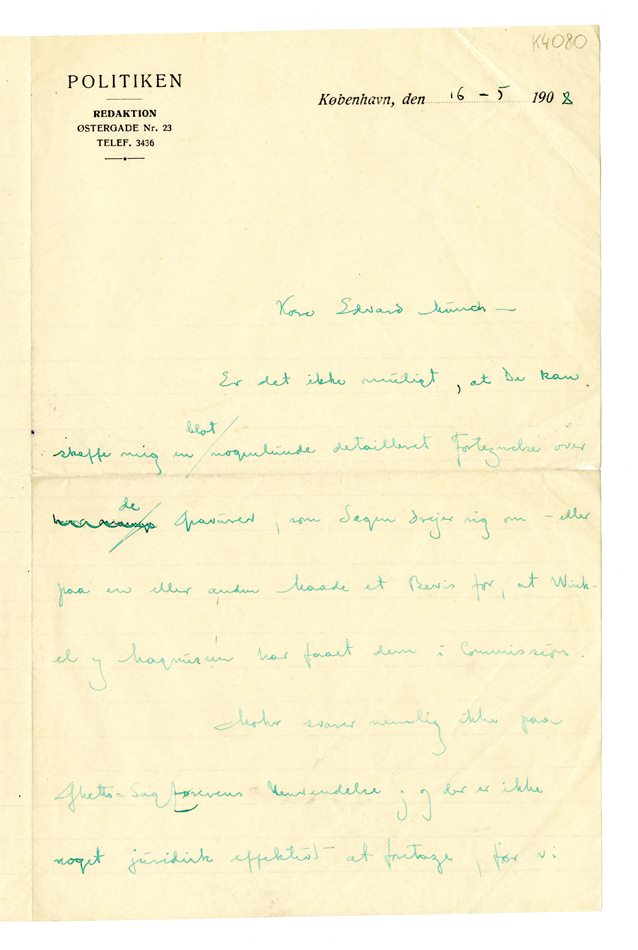 K4080
POLITIKEN
REDAKTION
ØSTERGADE Nr. 23
TELEF. 3436
København, den 16 - 5 1908
Kære Edvard Munch —
Er det ikke muligt, at De kan
skaffe mig en blot nogenlunde detailleret Fortegnelse over
de Gravurer, som Sagen drejer sig om - eller
paa en eller anden Maade et Bevis for, at Wink-
el og Magnussen har faaet dem i Commission.
Mohr svarer nemlig ikke paa
Ghetto-Sagførerens Henvendelse; og der er ikke
noget juridisk effektivt at foretage, før vi